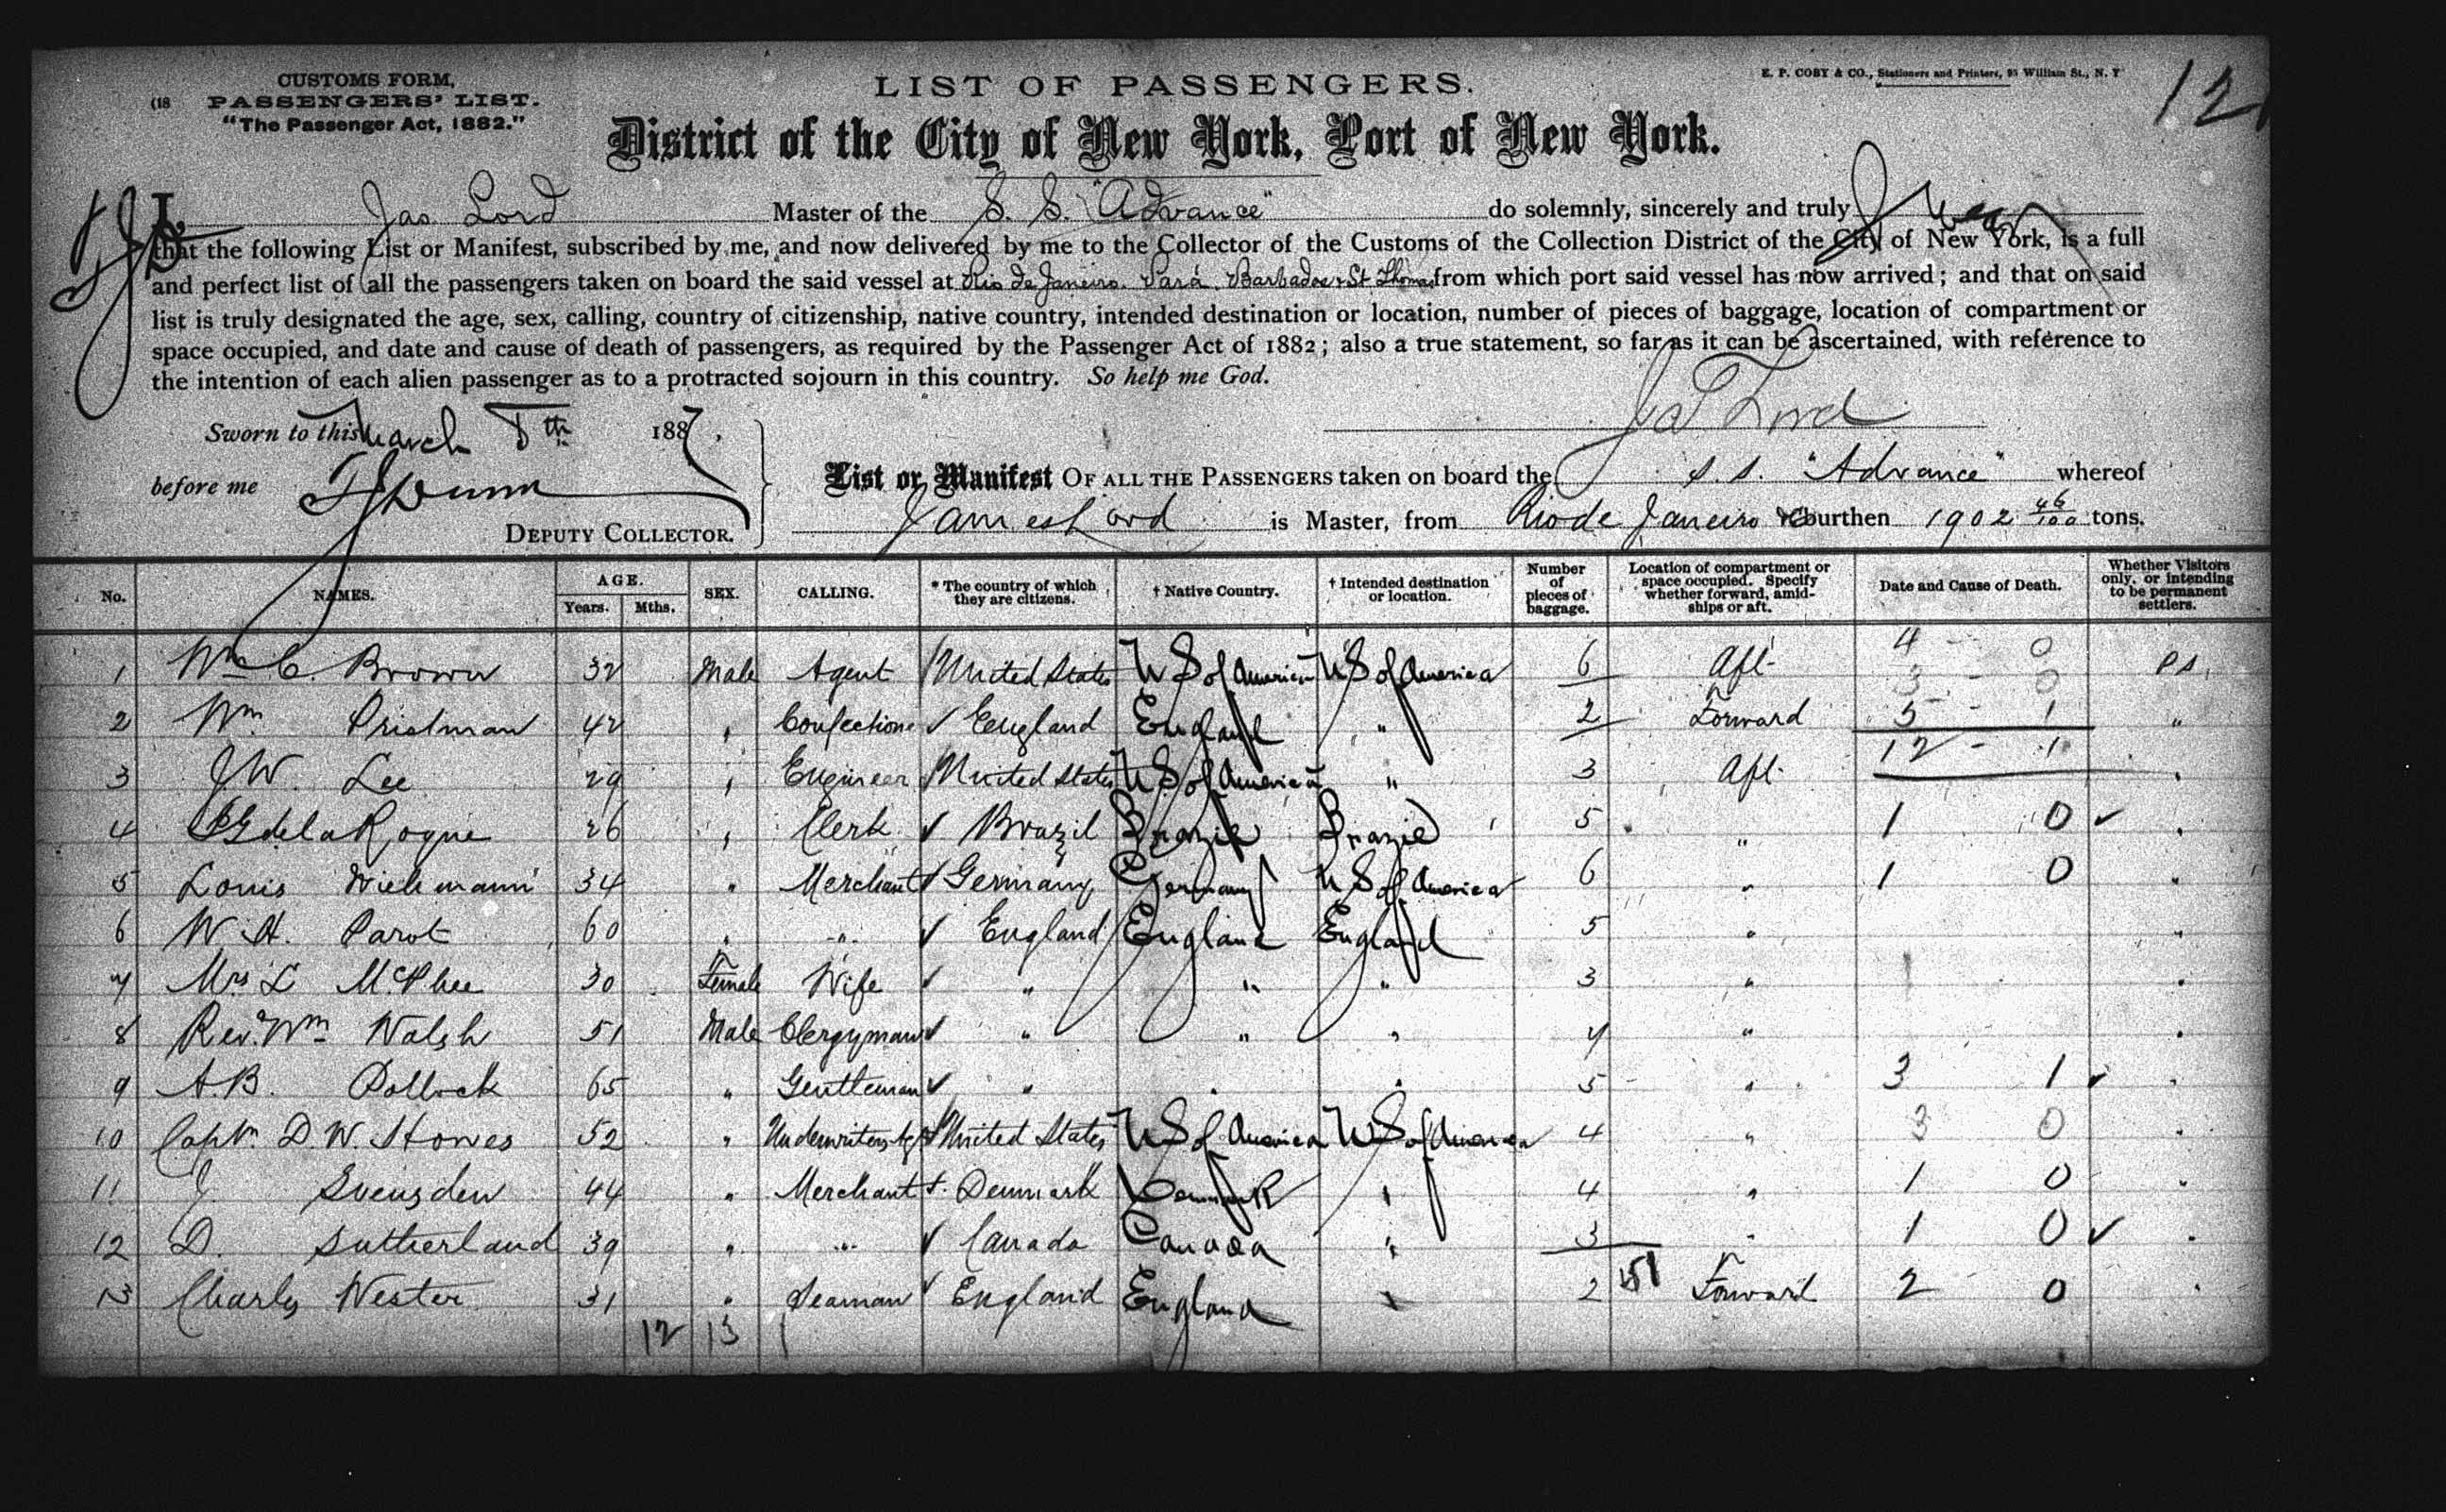 CUSTOMS FORM,
(18 PASSENGERS' LIST.
"The Passenger Act, 1882."
LIST OF PASSENGERS.
E. P. COBY & CO., Stationers and Printers, 95 William St., N. Y
12
District of the City of New York, Port of New York.
I, Jas Lord Master of the S. S. "Advance" do solemnly, sincerely and truly swear
that the following List or Manifest, subscribed by me, and now delivered by me to the Collector of the Customs of the Collection District of the City of New York, is a full
and perfect list of all the passengers taken on board the said vessel at Rio de Janeiro. Pará. Barbadoe & St Thomas from which port said vessel has now arrived; and that on said
list is truly designated the age, sex, calling, country of citizenship, native country, intended destination or location, number of pieces of baggage, location of compartment or
space occupied, and date and cause of death of passengers, as required by the Passenger Act of 1882; also a true statement, so far as it can be ascertained, with reference to
the intention of each alien passenger as to a protracted sojourn in this country. So help me God.
Jas Lord
Sworn to this March 8th 1887.
before me
DEPUTY COLLECTOR.
List or Manifest OF ALL THE PASSENGERS taken on board the S. S. "Advance" whereof
James Lord is Master, from Rio de Janeiro burthen 1902 46/100 tons.
No. NAMES. AGE. Years. Mths. SEX. CALLING. * The country of which they are citizens. † Native Country. † Intended destination or location. Number of pieces of baggage. Location of compartment or space occupied. Specify whether forward, amidships or aft. Date and Cause of Death. Whether Visitors only, or intending to be permanent settlers.
1 Wm C. Brown 32 Male Agent United States U S of America U S of America 6 Aft 4 - 0 3 - 0 P S
2 Wm Pristman 42 " Confectioner ✓ England England " 2 Forward 5 - 1 "
3 J W. Lee 29 " Engineer United States U S of America " 3 Aft 12 - 1 "
4 de la Roque 26 " Clerk ✓ Brazil Brazil Brazil 5 " 1 0 ✓ "
5 Louis Wiehmann 34 " Merchant ✓ Germany Germany U S of America 6 " 1 0 "
6 W. H. Parot 60 " " ✓ England England England 5 " "
7 Mrs L McPhee 30 Female Wife ✓ " " " 3 " "
8 Rev. Wm Walsh 51 Male Clergyman ✓ " " " 4 " "
9 A. B. Pollock 65 " Gentleman ✓ " " " 5 " 3 1 ✓ "
10 Captn D. W. Howes 52 " Underwriters Agt United States U S of America U S of America 4 " 3 0 "
11 J. Svensden 44 " Merchant Denmark Denmark " 4 " 1 0 "
12 D. Sutherland 39 " " ✓ Canada Canada " 3 " 1 0 ✓ "
51
13 Charly Wester 31 " Seaman ✓ England England " 2 Forward 2 0 "
12 13 1